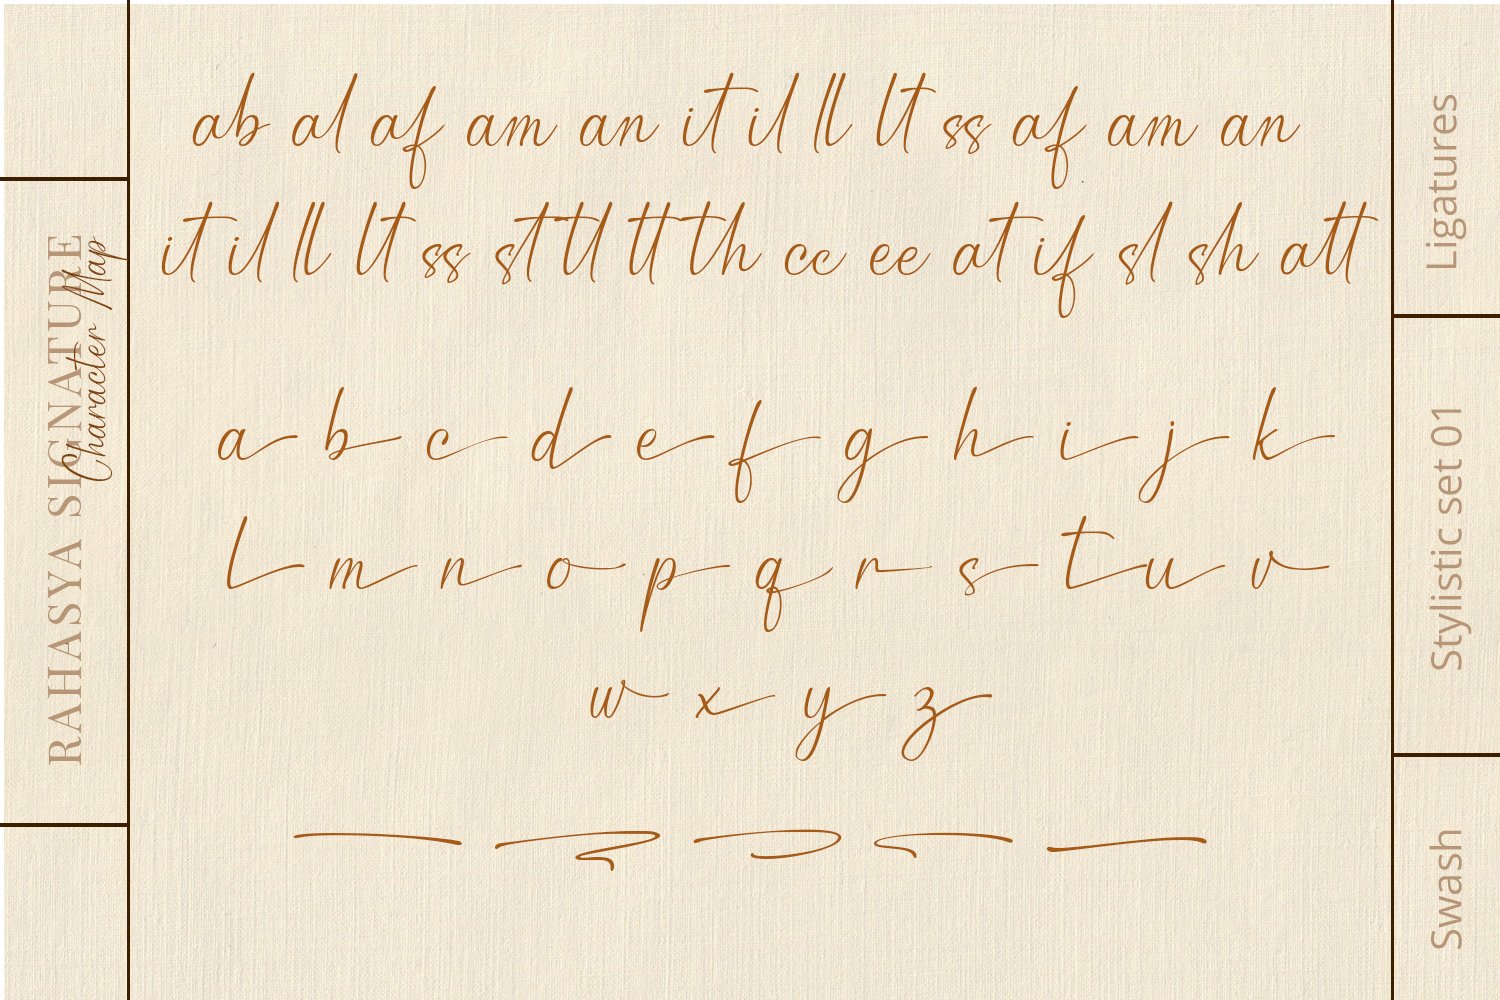 RAHASYA SIGNATURE
Character Map
ab al af am an it il ll lt ss af am an
it il ll lt ss st tl tt th cc ee at if sl sh att
a b c d e f g h i j k
l m n o p q r s t u v
w x y z
Ligatures
Stylistic set 01
Swash